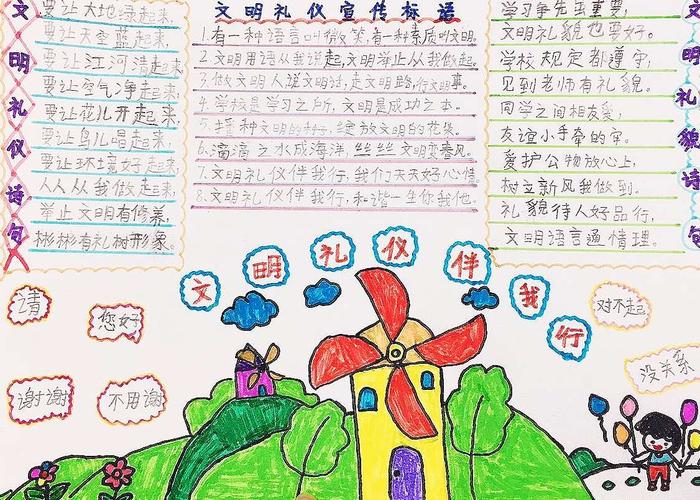 文明礼仪诗句
要让大地绿起来,
要让天空蓝起来,
要让江河清起来,
要让空气净起来,
要让花儿开起来,
要让鸟儿唱起来,
要让环境好起来,
人人从我做起来,
举止文明有修养,
彬彬有礼树形象。
文明礼仪宣传标语
1.有一种语言叫微笑,有一种素质叫文明。
2.文明用语从我说起,文明举止从我做起。
3.做文明人说文明话,走文明路,行文明事。
4.学校是学习之所,文明是成功之本。
5.播种文明的种子,绽放文明的花朵。
6.滴滴之水成海洋,丝丝文明变春风。
7.文明礼仪伴我行,我们天天好心情。
8.文明礼仪伴我行,和谐一生你我他。
学习争先更重要,
文明礼貌也要好。
学校规定都遵守,
见到老师有礼貌。
同学之间相友爱,
友谊小手牵的牢。
爱护公物放心上,
树立新风我做到。
礼貌待人好品行,
文明语言通情理。
明礼貌诗句
文明礼仪伴我行
请
您好
谢谢
不用谢
对不起
没关系